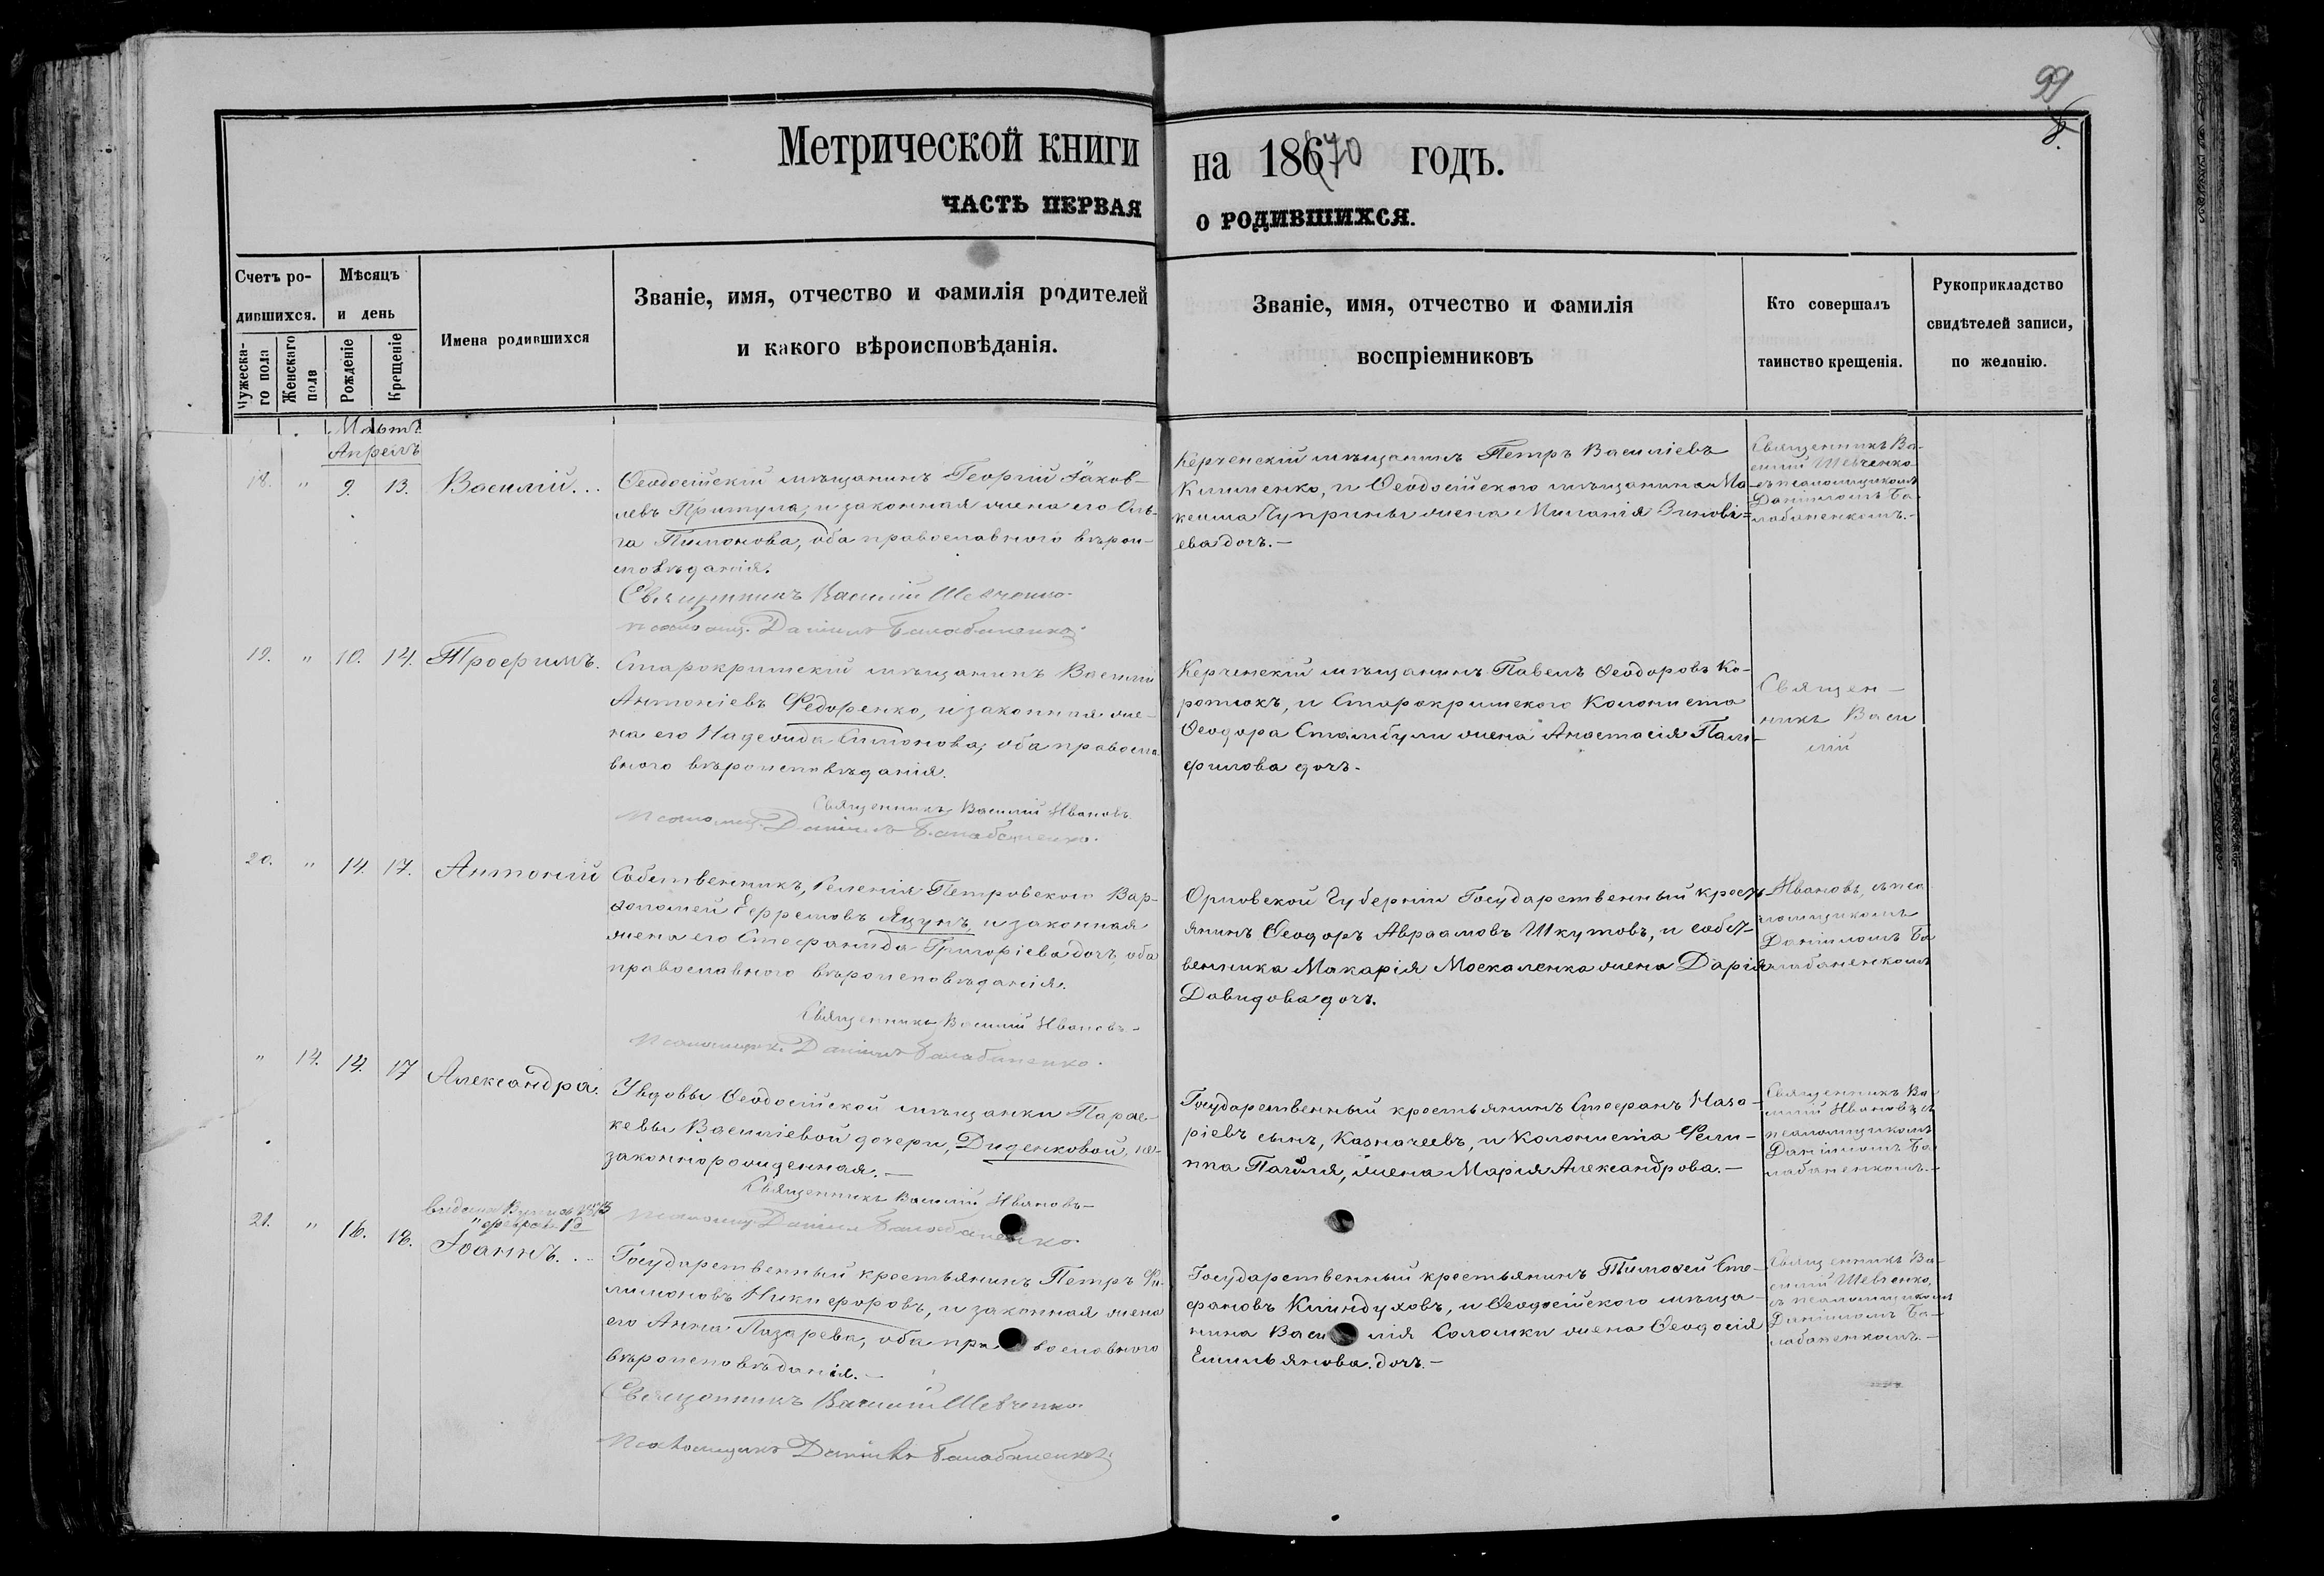 99
Метрической книги на 18670 годъ.
ЧАСТЬ ПЕРВАЯ О РОДИВШИХСЯ.
Счетъ ро-
дившихся.
Мужеска-
го пола
Женскаго
пола
Мѣсяцъ
и день
Рожденіе
Крещеніе
Имена родившихся
Званіе, имя, отчество и фамилія родителей
и какого вѣроисповѣданія.
Званіе, имя, отчество и фамилія
воспріемниковъ
Кто совершалъ
таинство крещенія.
Рукоприкладство
свидѣтелей записи,
по желанію.
Апрель
18. " 9. 13. Василий...
Ѳеодосійскій мѣщанинъ Георгій Іаков-
левъ Притула, и законная жена его Оль-
га Пимонова, оба православнаго вѣрои-
сповѣданія.
Священникъ Василій Шевченко
Даніилъ Балабаненко
Керченскій мѣщанинъ Петръ Василіевъ
Клименко, и Ѳеодосійского мѣщанина Ма-
ксима Чуприны жена Миланія Зинові=
ева дочь.—
Священникъ Ва-
силій Шевченко
съ псаломщикомъ
Даніиломъ Ба-
лабаненкомъ.—
19. " 10. 14. Трофимъ.
Старокримскій мѣщанинъ Василій
Антоніевъ Федоренко, и законная же-
на его Надежда Симонова; оба правосла-
внаго вѣроисповѣданія.
Священникъ Василій Ивановъ
Псаломщ. Даніилъ Балабаненко.
Керченскій мѣщанинъ Павелъ Ѳеодоровъ Ко-
ротокъ, и Старокримского колониста
Ѳеодора Стамбули жена Анастасія Пам-
филова дочь.
Священ-
никъ Васи
лій
20. " 14. 17. Антоній
Собственникъ, Селенія Петровского Вар-
ѳоломей Ефремовъ Яцунъ, и законная
жена его Стефанида Григоріева дочь, оба
православнаго вѣроисповѣданія.
Священникъ Василій Ивановъ—
Псаломщикъ Даніилъ Балабаненко.
Орловской Губерніи Государственный крестъ-
янинъ Ѳеодоръ Авраамовъ Шкутовъ, и собст-
венника Макарія Москаленка жена Дарія
Давидова дочь.
Ивановъ, съ пса
ломщикомъ
Даніиломъ Ба
лабаненкомъ
" 14. 14. 17 Александра.
У вдовы Ѳеодосійской мѣщанки Парас-
кевы Василіевой дочери, Диденковой, не-
законнорожденная.—
Священникъ Василій Ивановъ—
Псаломщ. Даніилъ Балабаненко.
Государственный крестьянинъ Стефанъ Наза-
ріевъ сынъ, Казначеевъ, и колониста Фили-
ппа жена Марія Александрова.—
Священникъ Ва-
силій Ивановъ, съ
псаломщикомъ
Даніиломъ Ба
лабаненкомъ.—
21. " 16. 18. Іоаннъ...
Государственный крестьянинъ Петръ Фи-
лимоновъ Никифоровъ, и законная жена
его Анна Лазарева, оба православнаго
вѣроисповѣданія.—
Священникъ Василій Шевченко
Псаломщикъ Даніилъ Балабаненко
Государственный крестьянинъ Тимоѳей Сте-
фановъ Киндуховъ, и Ѳеодосійского мѣща-
нина Василія Соломки жена Ѳеодосія
Емильянова дочь.—
Священникъ Ва-
силій Шевченко,
съ псаломщикомъ
Даніиломъ Ба-
лабаненкомъ.—